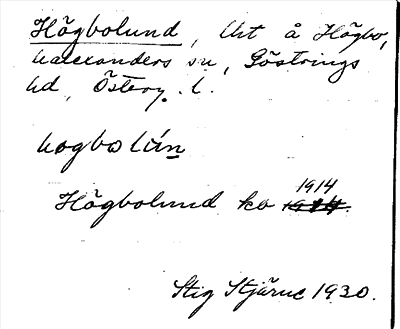 Högbolund, Urt å Högbo,
Kalexanders sn, Göstrings
hd, Österg. l.
hogbo lún
Högbolund ko 1914
Stig Stjärne 1930.